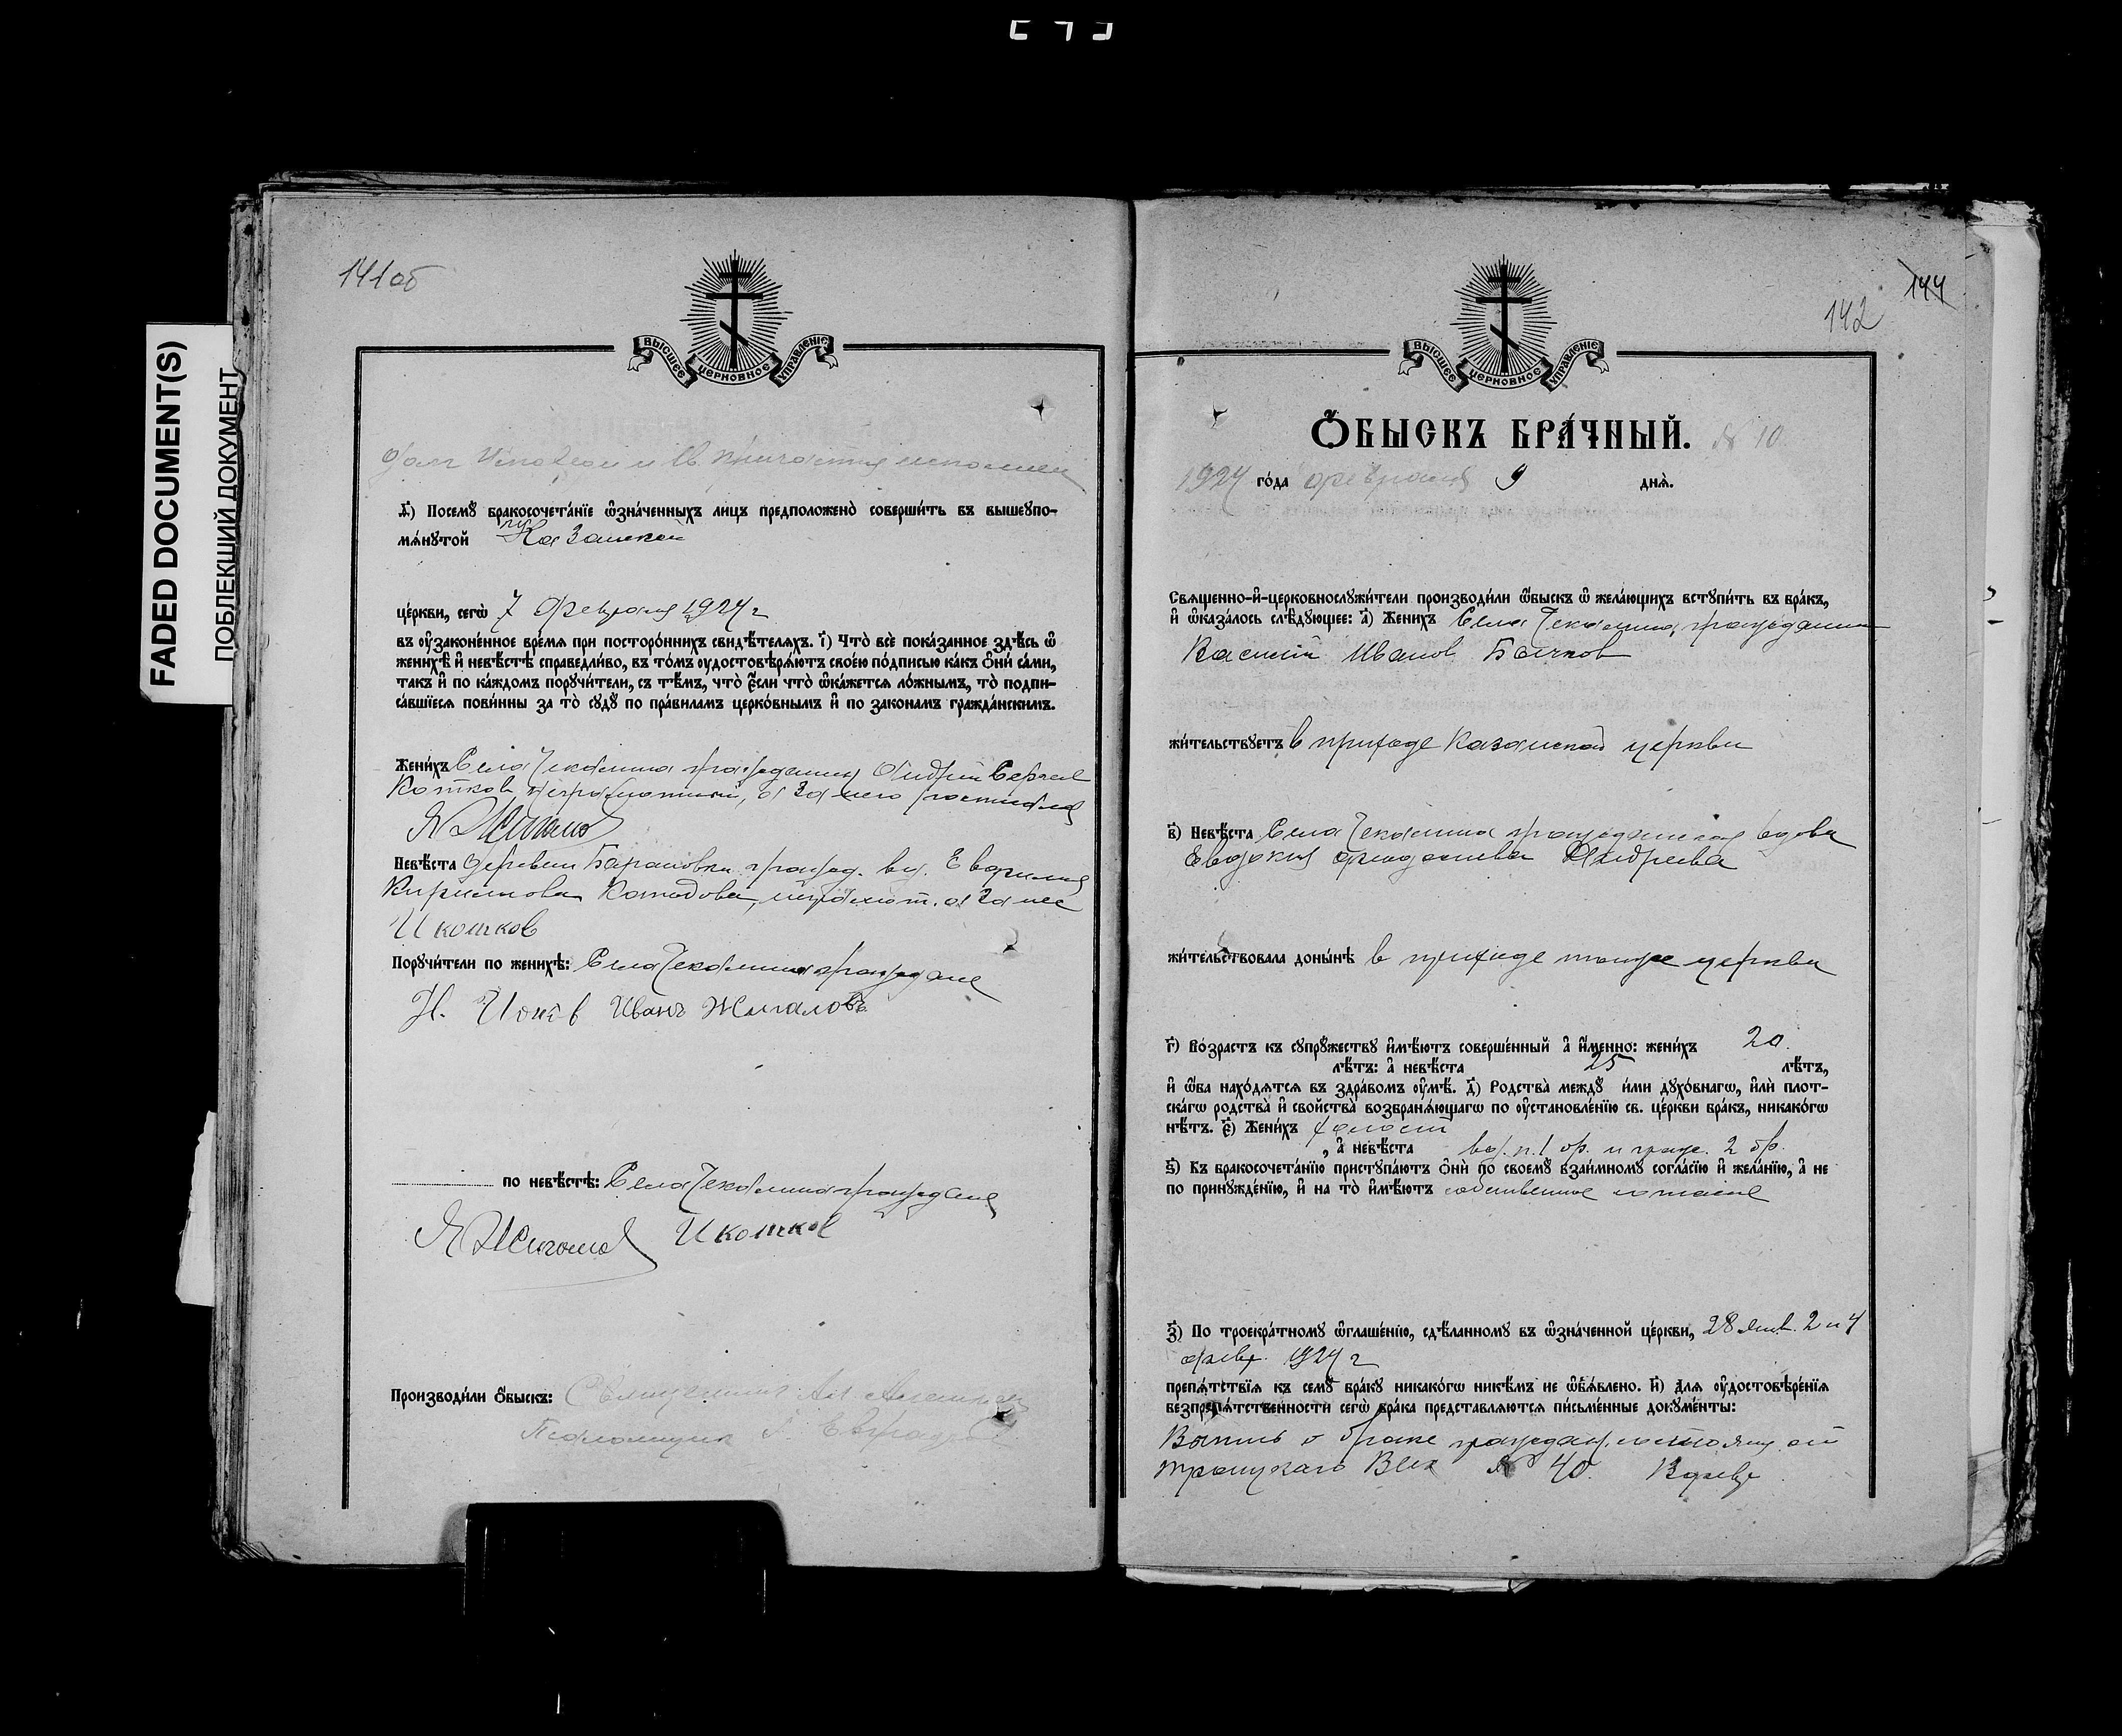 FADED DOCUMENT(S)
ПОБЛЕКШИЙ ДОКУМЕНТ
141 об
ВЫСШЕЕ ЦЕРКОВНОЕ УПРАВЛЕНІЕ
долг Исповеди и Св. Причастия исполнен
ѳ҃) Посемꙋ̀ бракосочета́нїе ѡ҆зна́ченныхъ лицъ предположено̀ соверши́ть въ вышеупо-
мѧ́нутой Казанской
це́ркви, сегѡ̀ 7 февраля 1924 г
въ оу҆зако́ненное вре́мѧ при посторо́ннихъ свидѣ́телѧхъ. і҃) Что̀ всѐ пока́занное здѣ́сь ѡ҆
женихѣ̀ и҆ невѣ́стѣ справедли́во, въ то́мъ оу҆достовѣрѧ́ютъ свое́ю по́дписью ка́къ ѻ҆нѝ са́ми,
та́къ и҆ по ка́ждомъ порꙋчи́тели, съ тѣ́мъ, что̀ є҆́сли что̀ ѡ҆ка́жетсѧ ло́жнымъ, то̀ подпи-
са́вшїесѧ пови́нны за то̀ сꙋдꙋ̀ по пра́виламъ церко́внымъ и҆ по зако́намъ гражда́нскимъ.
Жени́хъ Села Чекалина гражданин Андрей Сергеев
Котков неграмотный, а за него расписался
Невѣ́ста деревни Барановки гражд. вд. Евдокия
Кирилова неграмот. а за нее
И Котков
Порꙋчи́тели по женихѣ̀: Села Чекалина граждане
Иванъ Жигаловъ
по невѣ́стѣ: Села Чекалина граждане
Я Жигалов И Котков
Производи́ли ѻ҆́быскъ: Священник Ал.
Псаломщик
144
142
ВЫСШЕЕ ЦЕРКОВНОЕ УПРАВЛЕНІЕ
Ѻ҆́БЫСКЪ БРА́ЧНЫЙ. № 10
1924 го́да февраля 9 днѧ̀.
Свѧще́нно-и҆-церковнослꙋжи́тели производи́ли ѻ҆́быскъ ѡ҆ жела́ющихъ встꙋпи́ть въ бра́къ,
и҆ ѡ҆каза́лось слѣ́дующее: а҃) Жени́хъ Села Чекалина, гражданин
Василий Иванов Бочков
жи́тельствꙋетъ в приходе Казанской церкви
в҃) Невѣ́ста Села Чекалина гражданская вдова
Евдокия Андреева
жи́тельствовала доны́нѣ в приходе тоиже церкви
г҃) Во́зрастъ къ сꙋпрꙋ́жествꙋ и҆мѣ́ютъ соверше́нный а҆ и҆́менно: жени́хъ 20
лѣ́тъ: а҆ невѣ́ста 25 лѣ́тъ,
и҆ ѻ҆́ба нахо́дѧтсѧ въ здра́вомъ оу҆мѣ̀. д҃) Родства̀ междꙋ̀ и҆́ми дꙋхо́внагѡ, и҆лѝ плот-
ска́гѡ родства̀ и҆ свойства̀ возбранѧ́ющагѡ по оу҆становле́нїю св. це́ркви бра́къ, никако́гѡ
нѣ́тъ. є҃) Жени́хъ холост
, а҆ невѣ́ста вд. п. 1 бр. и гражд. 2 бр.
ѕ҃) Къ бракосочета́нїю пристꙋпа́ютъ ѻ҆нѝ по своемꙋ̀ взаи́мномꙋ согла́сїю и҆ жела́нїю, а҆ не
по принꙋжде́нїю, и҆ на то̀ и҆мѣ́ютъ собственное желание
з҃) По троекра́тномꙋ ѡ҆глаше́нїю, сдѣ́ланномꙋ въ ѡ҆зна́ченной це́ркви, 28 янв. 2 и 4
февр. 1924 г
препѧ́тствїѧ къ семꙋ̀ бра́кꙋ никако́гѡ никѣ́мъ не ѡ҆б̾ѧ́влено. и҃) Длѧ оу҆достовѣре́нїѧ
безпрепѧ́тственности сегѡ̀ бра́ка представлѧ́ютсѧ пи́сьменные докꙋме́нты:
Выпись о браке граждан.
Троицкаго Вик № 40.